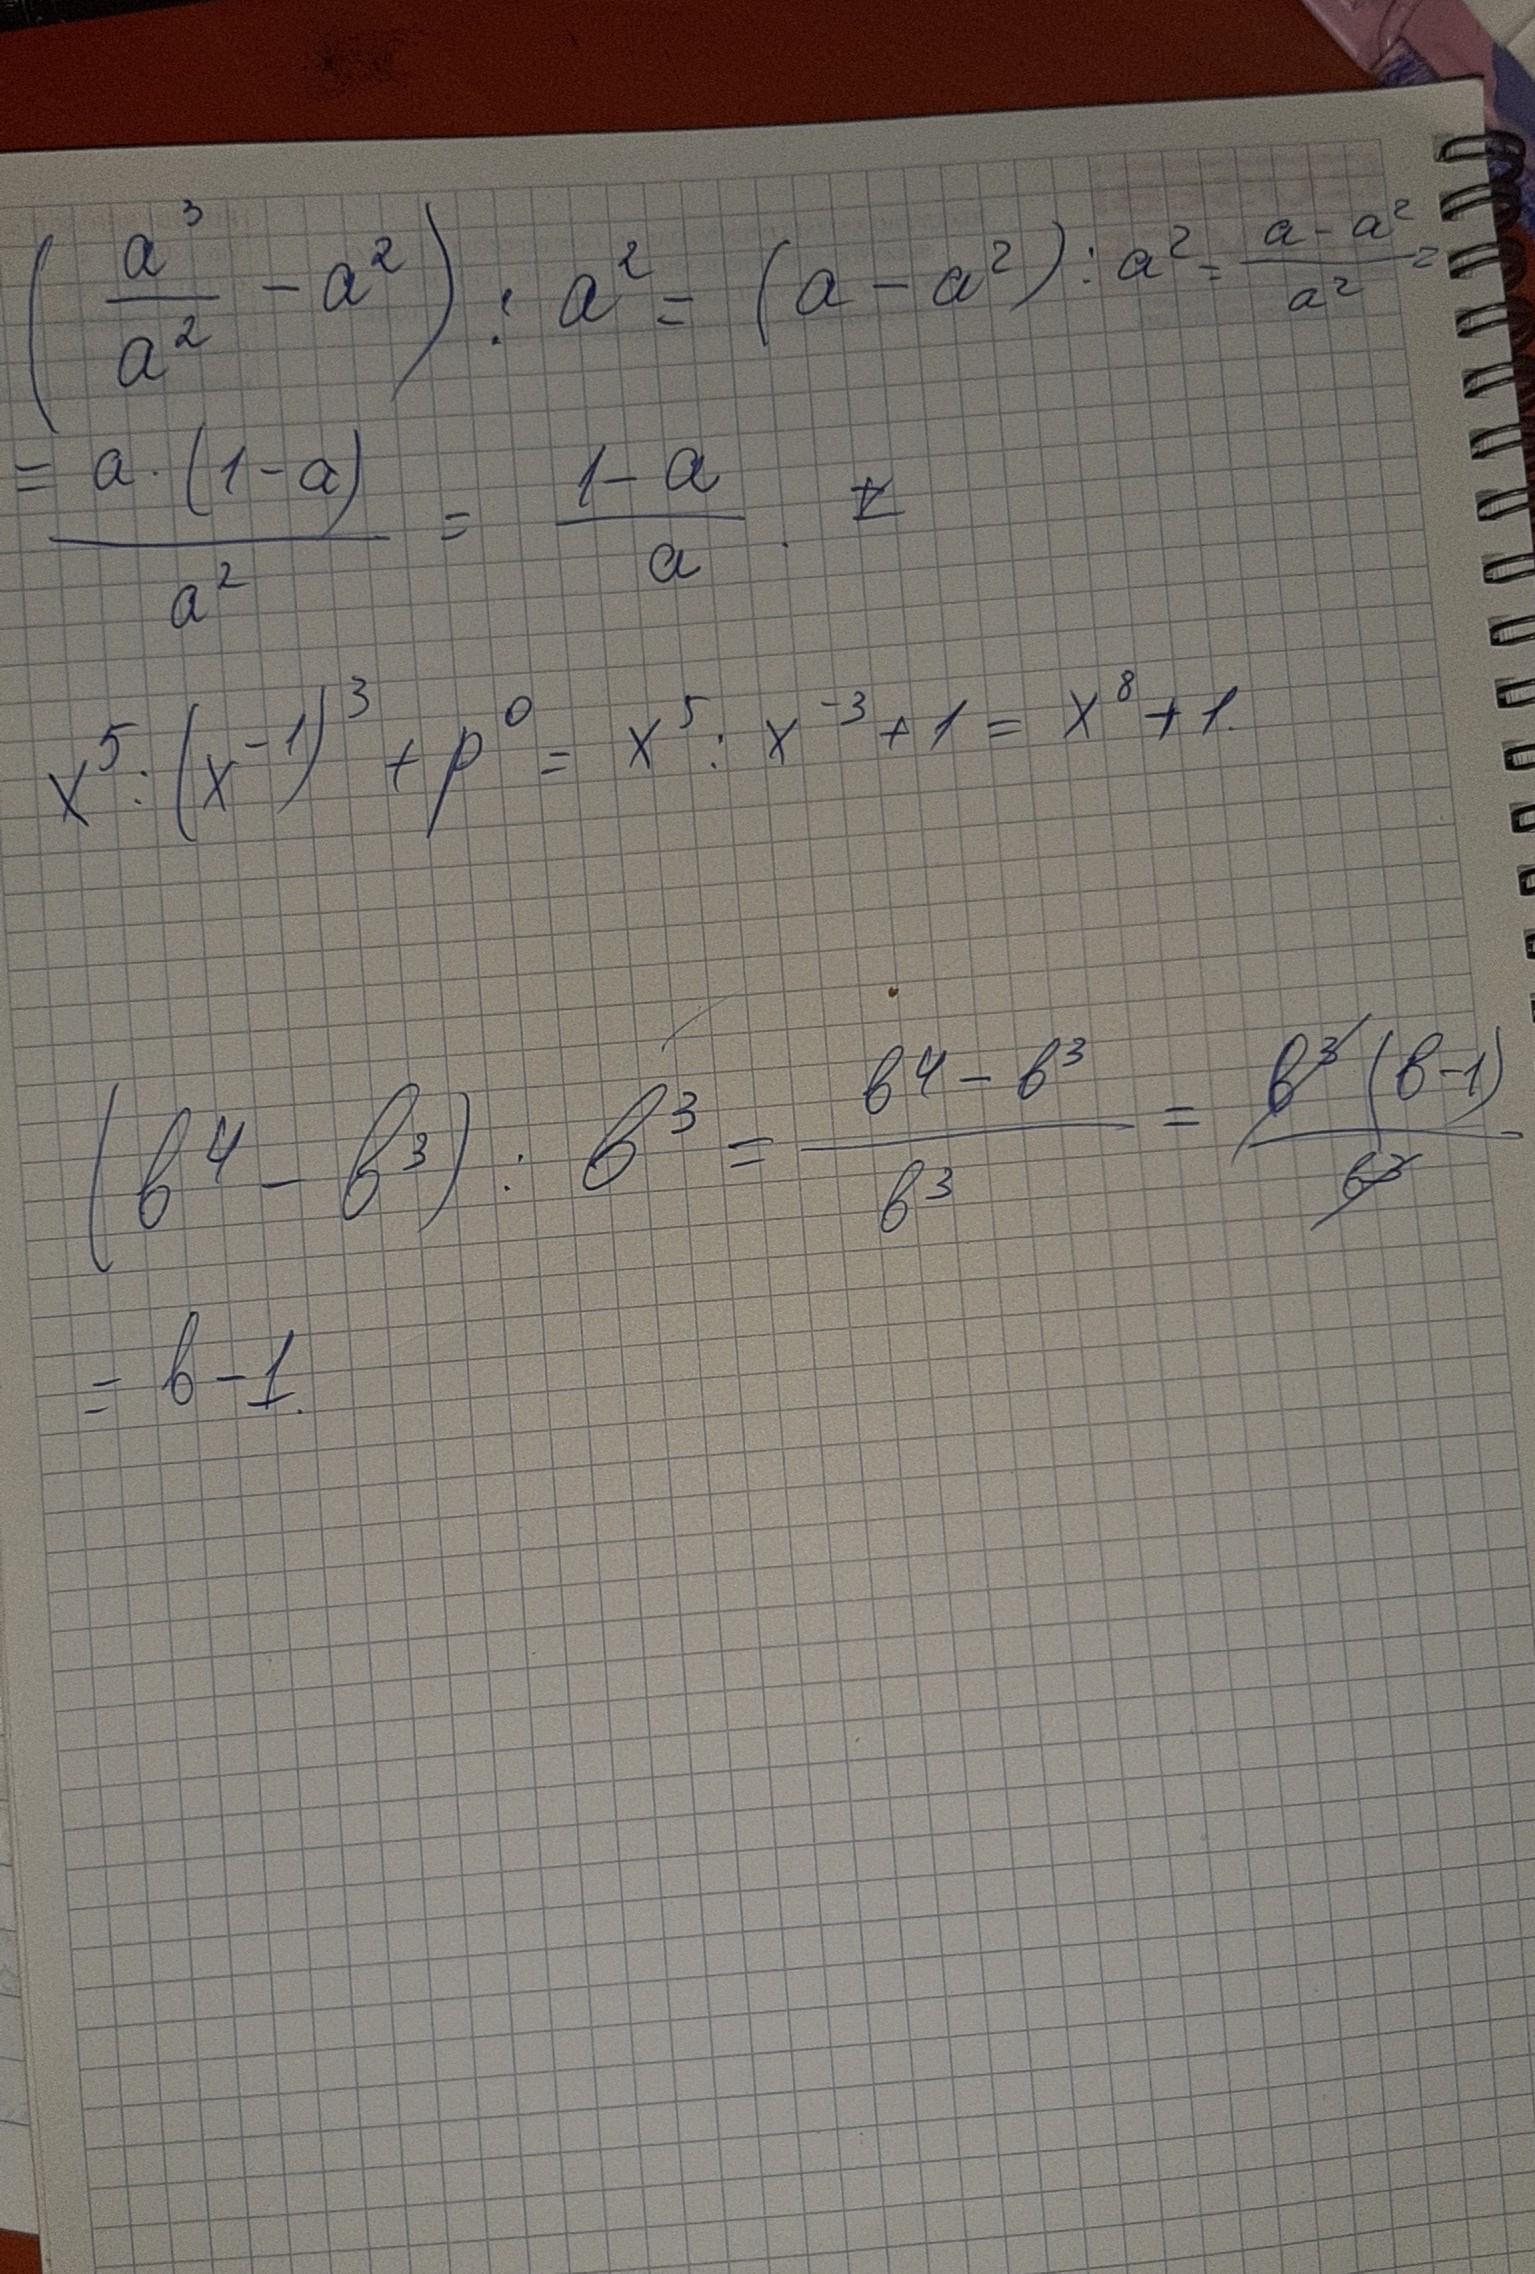 (a³/a² - a²) : a² = (a - a²) : a² = (a - a²)/a² =
= a·(1-a)/a² = (1-a)/a.
x⁵ : (x⁻¹)³ + p⁰ = x⁵ : x⁻³ + 1 = x⁸ + 1.
(b⁴ - b³) : b³ = (b⁴ - b³)/b³ = b³(b-1)/b³
= b - 1.